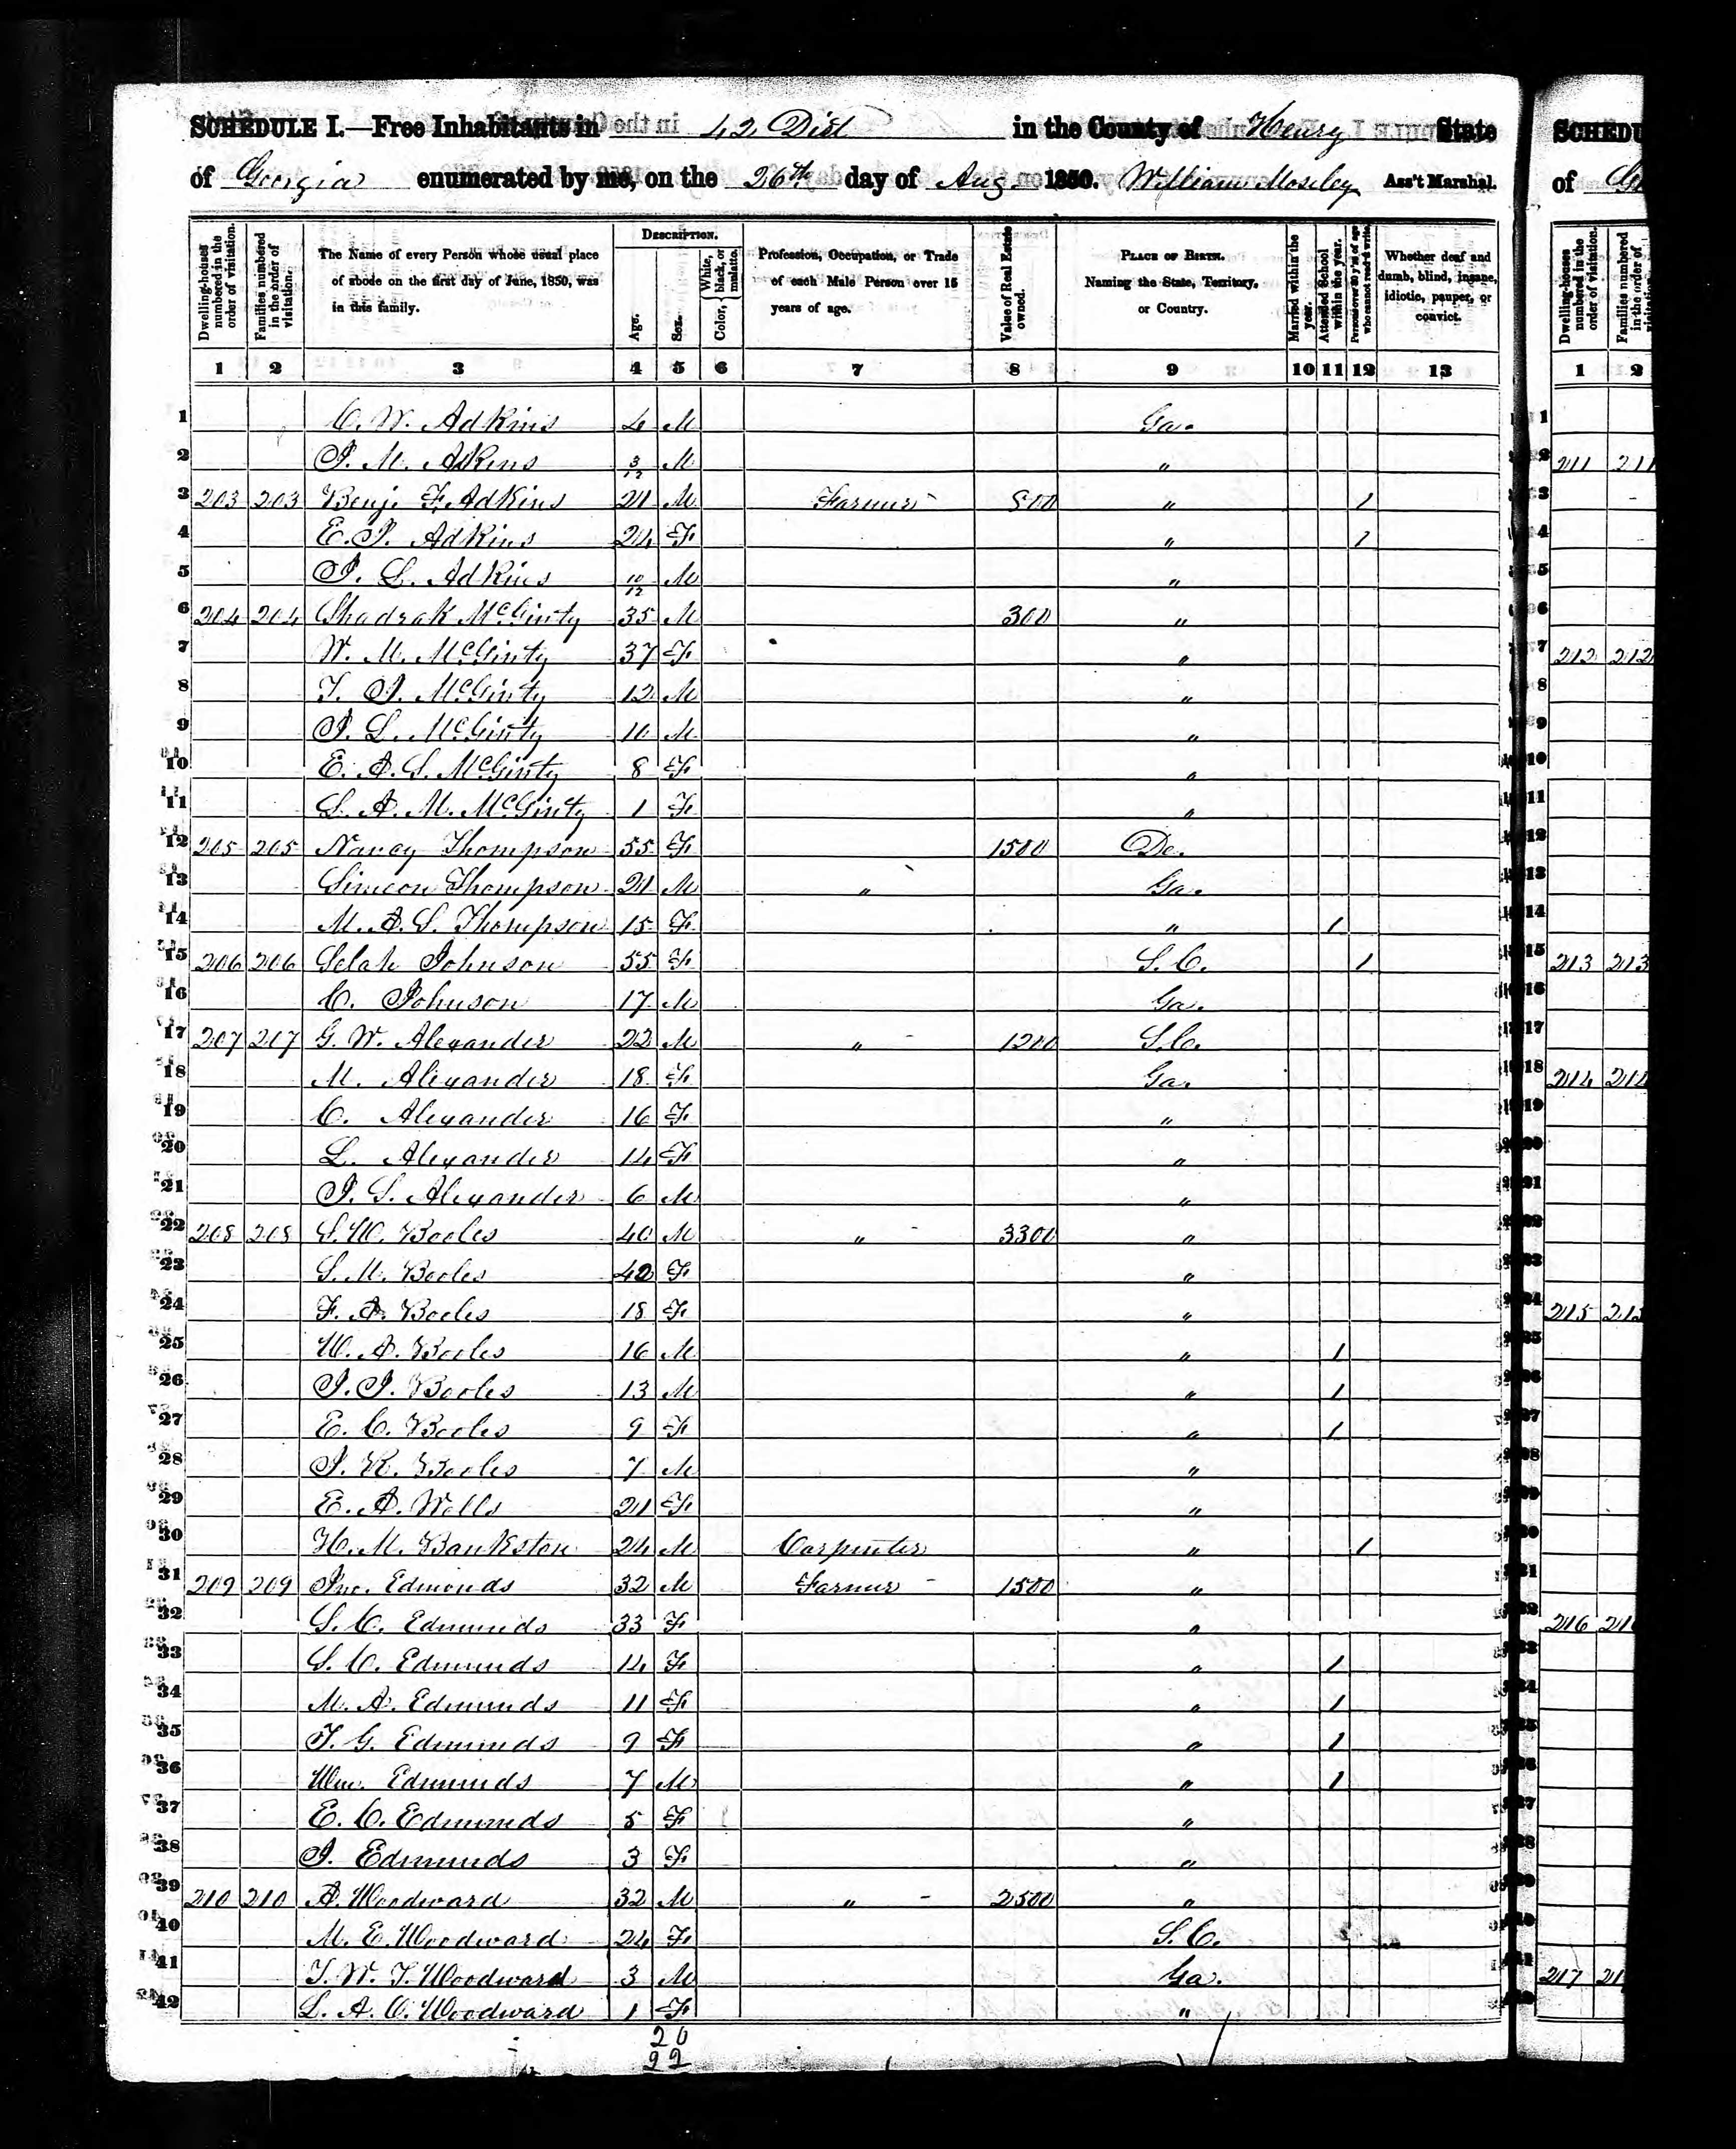 SCHEDULE I.—Free Inhabitants in 42 Dist in the County of Henry State
of Georgia enumerated by me, on the 26th day of Aug 1850. William Moseley Ass't Marshal.
Dwelling-houses numbered in the order of visitation.
Families numbered in the order of visitation.
The Name of every Person whose usual place of abode on the first day of June, 1850, was in this family.
DESCRIPTION.
Age.
Sex.
Color, { White, black, or mulatto.
Profession, Occupation, or Trade of each Male Person over 15 years of age.
Value of Real Estate owned.
PLACE OF BIRTH. Naming the State, Territory, or Country.
Married within the year.
Attended School within the year.
Persons over 20 y'rs of age who cannot read & write.
Whether deaf and dumb, blind, insane, idiotic, pauper, or convict.
1 2 3 4 5 6 7 8 9 10 11 12 13
1 C. W. Adkins 4 M Ga.
2 J. M. Adkins 3/12 M "
3 203 203 Benj. F. Adkins 21 M Farmer 800 " 1
4 E. J. Adkins 24 F " 1
5 J. L. Adkins 10/12 M "
6 204 204 Shadrak McGinty 35 M 300 "
7 W. M. McGinty 37 F "
8 T. J. McGinty 12 M "
9 J. L. McGinty 10 M "
10 E. A. S. McGinty 8 F "
11 L. A. M. McGinty 1 F "
12 205 205 Nancy Thompson 55 F 1500 De.
13 Simeon Thompson 21 M " Ga.
14 M. A. S. Thompson 15 F " 1
15 206 206 Selah Johnson 55 F S.C. 1
16 C. Johnson 17 M Ga.
17 207 207 G. W. Alexander 22 M " 1200 S.C.
18 M. Alexander 18 F Ga.
19 C. Alexander 16 F "
20 L. Alexander 14 F "
21 J. S. Alexander 6 M "
22 208 208 Booles 40 M " 3300 "
23 S. M. Booles 42 F "
24 F. A. Booles 18 F "
25 W. A. Booles 16 M " 1
26 J. J. Booles 13 M " 1
27 E. C. Booles 9 F " 1
28 J. R. Booles 7 M "
29 E. A. Wells 21 F "
30 H. M. Bankston 24 M Carpenter " 1
31 209 209 Jno. Edmonds 32 M Farmer 1500 "
32 S. C. Edmunds 33 F "
33 S. C. Edmunds 14 F " 1
34 M. A. Edmunds 11 F " 1
35 T. G. Edmunds 9 F " 1
36 Wm. Edmunds 7 M " 1
37 E. C. Edmunds 5 F "
38 J. Edmunds 3 F "
39 210 210 A. Woodward 32 M " 2500 "
40 M. E. Woodward 24 F S.C.
41 T. W. T. Woodward 3 M Ga.
42 L. A. C. Woodward 1 F "
20
22
SCHEDU
of
Dwelling-houses numbered in the order of visitation.
Families numbered in the order of
1 2
1
2 211 211
3
4
5
6
7 212 212
8
9
10
11
12
13
14
15 213 213
16
17
18 214 214
19
20
21
22
23
24 215 215
25
26
27
28
29
30
31
32 216
33
34
35
36
37
38
39
40
41 217
42